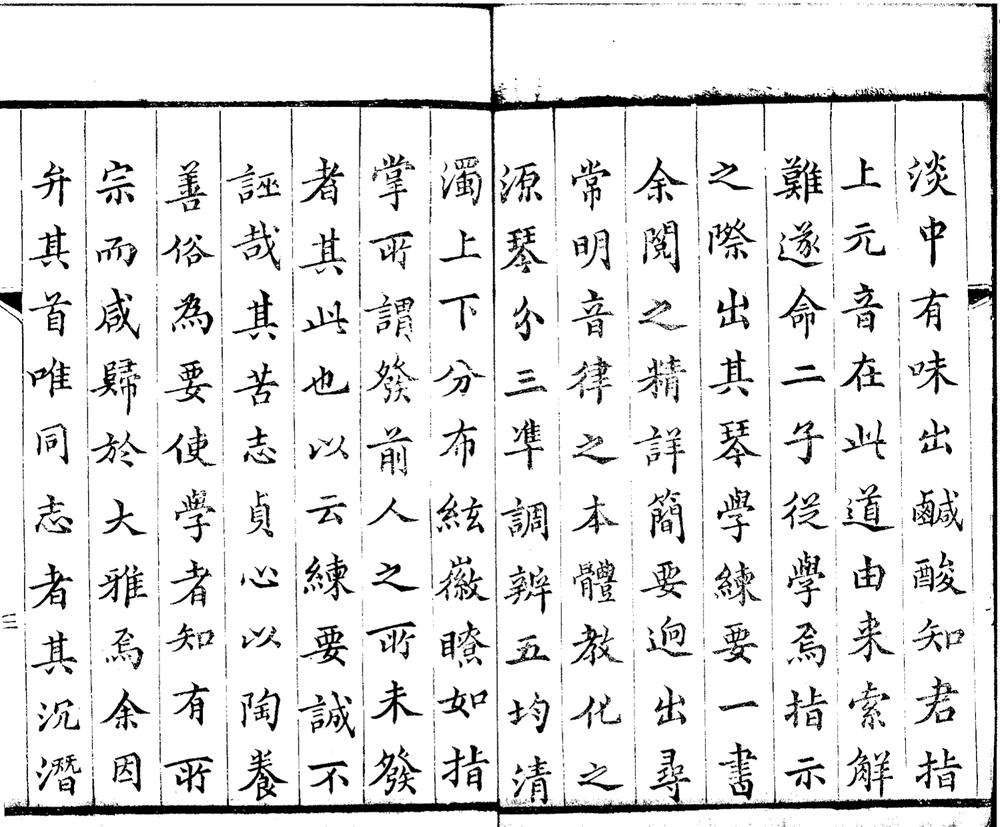 淡中有味出鹹酸知君指
上元音在此道由来索解
難遂命二子從學焉指示
之際出其琴學練要一書
余閱之精詳簡要迥出尋
常明音律之本體教化之
源琴分三凖調辨五均清
濁上下分布絃徽瞭如指
掌所謂發前人之所未發
者其此也以云練要誠不
誣哉其苦志貞心以陶養
善俗為要使學者知有所
宗而咸歸於大雅焉余因
弁其首唯同志者其沉潛
三